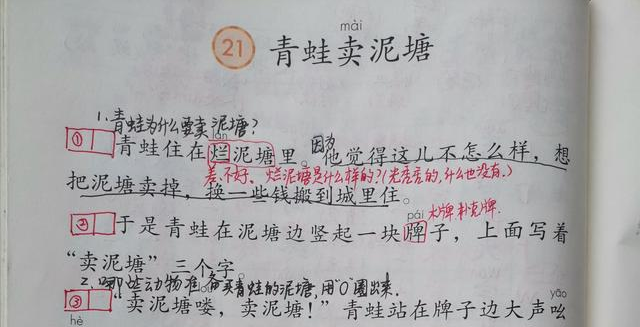 mài
21 青蛙卖泥塘
1.青蛙为什么要卖泥塘?
làn
① 青蛙住在烂泥塘里。因为他觉得这儿不怎么样,想
差、不好、烂泥塘是什么样的?(光秃秃的,什么也没有。)
把泥塘卖掉,换一些钱搬到城里住。
pái 木牌、扑克牌.
② 于是青蛙在泥塘边竖起一块牌子,上面写着
“卖泥塘”三个字
2.哪些动物准备买青蛙的泥塘,用“O”圈出来.
yāo
③ “卖泥塘喽,卖泥塘!”青蛙站在牌子边大声吆
hè